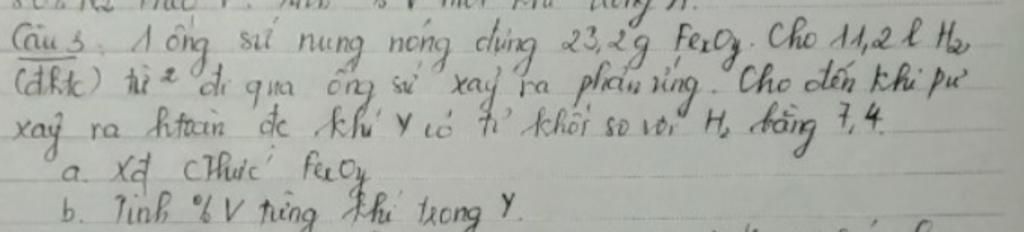 Câu 3. 1 ống sứ nung nóng đựng 23,2g FexOy. Cho 11,2 l H2
(đktc) từ² đi qua ống sứ xảy ra phản ứng. Cho đến khi pư
xảy ra htoàn đc khí Y có tỉ khối so với H2 bằng 7,4.
a. Xđ CThức FexOy
b. Tính % V từng khí trong Y.